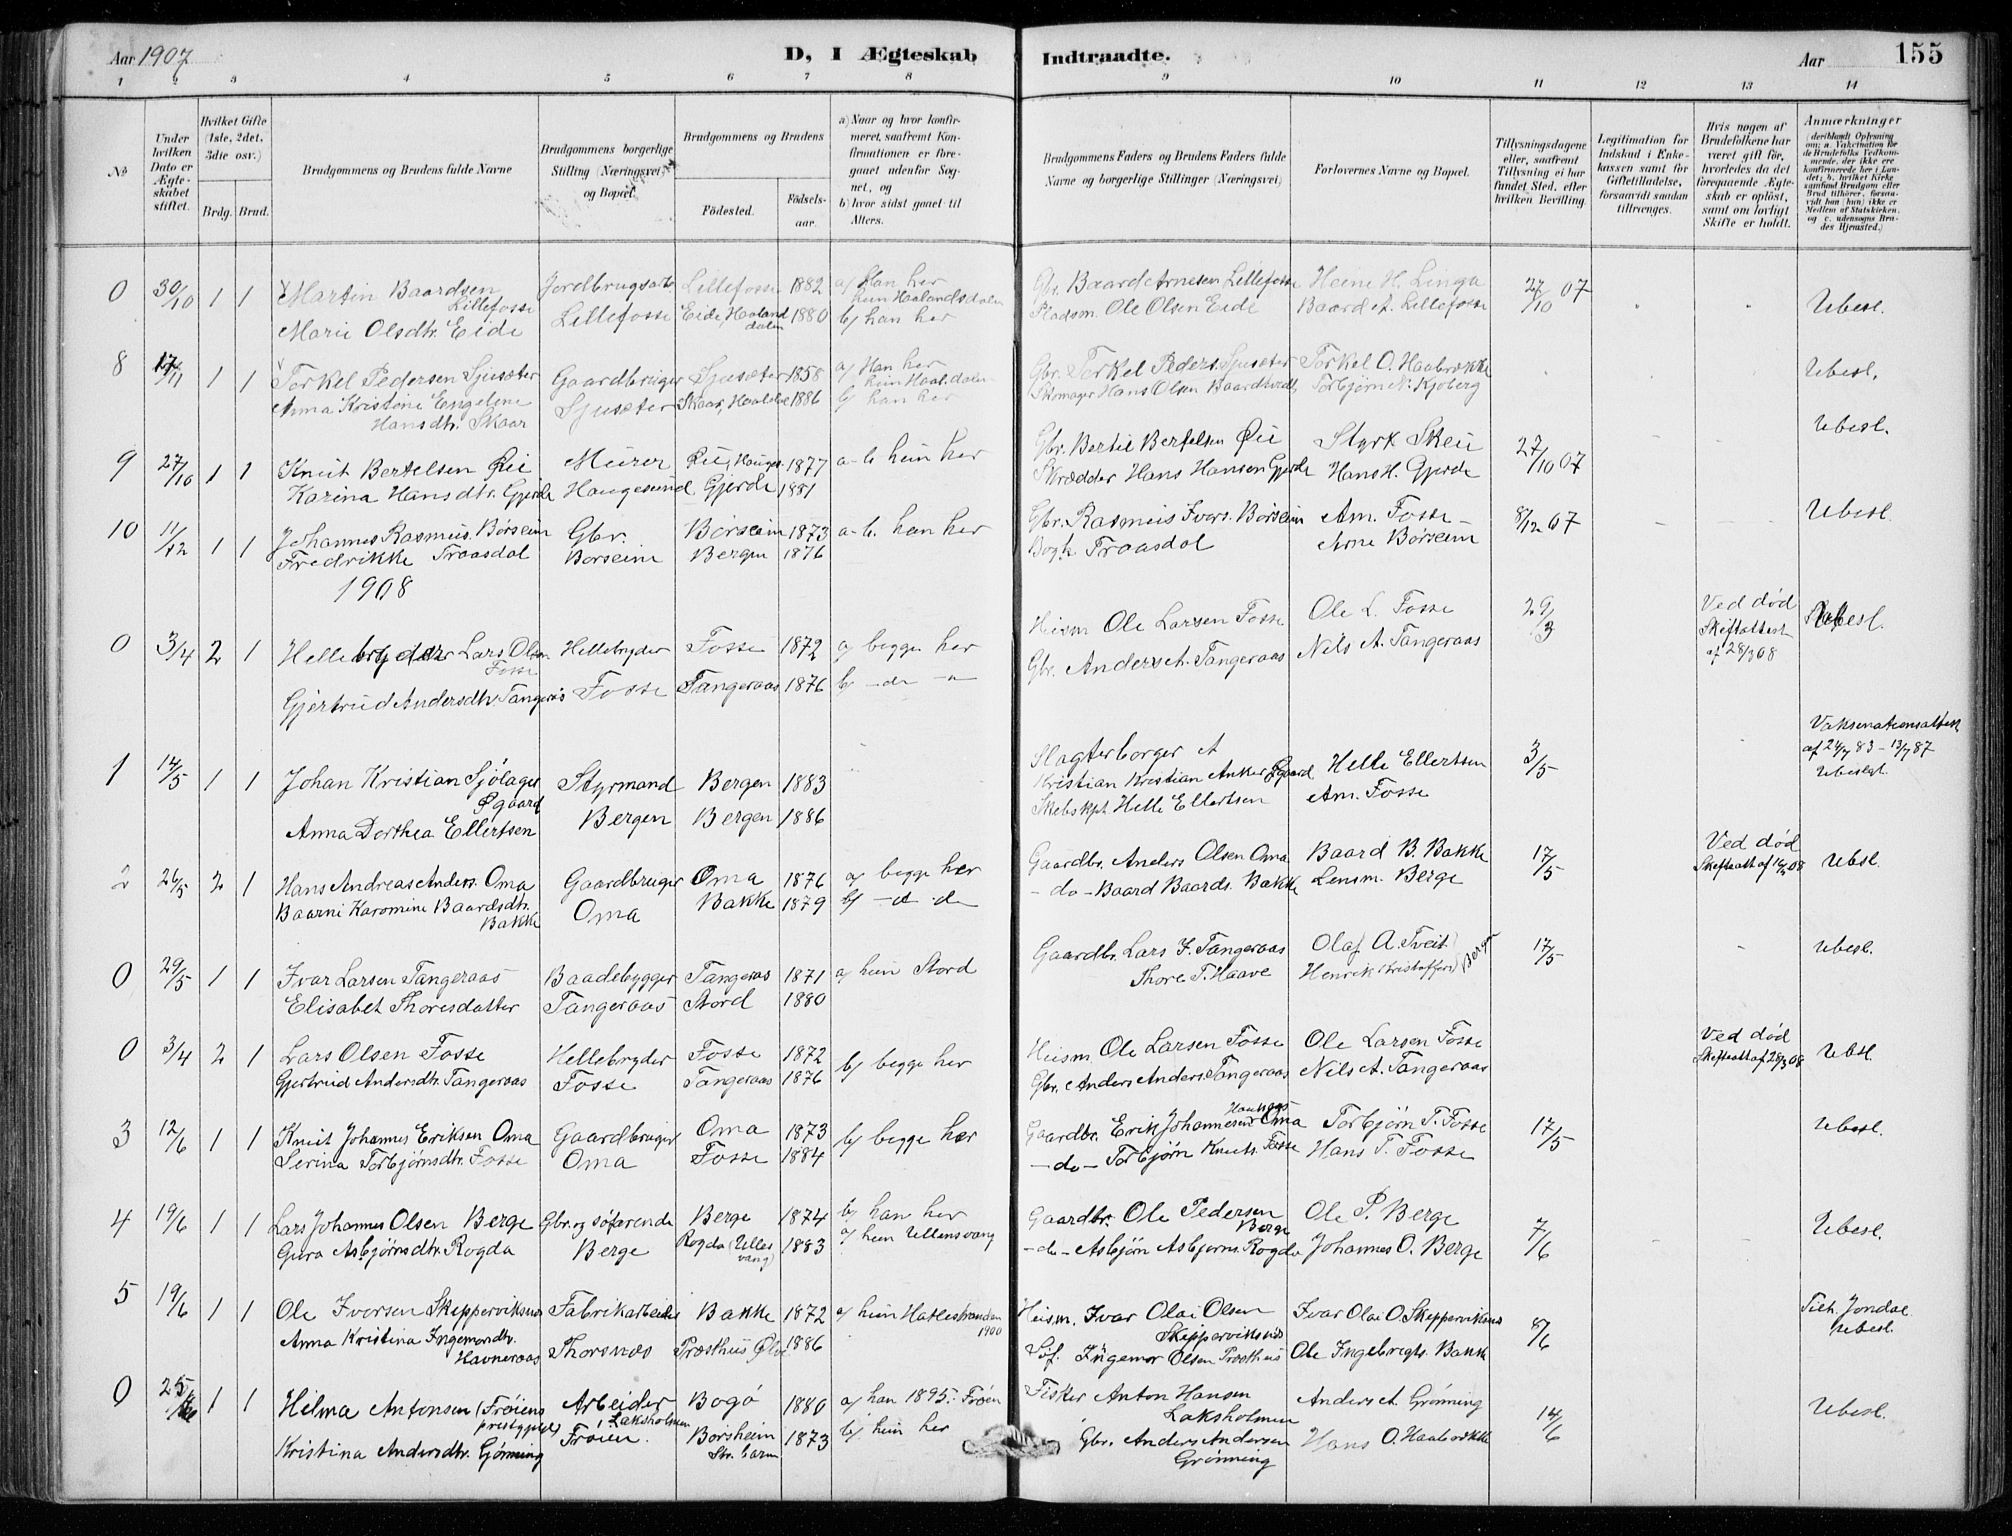 Aar 1907
D, I Ægteskab Indtraadte.
Aar
155
1 2 3 4 5 6 7 8 9 10 11 12 13 14
№
Under hvilken Dato er Ægteskabet stiftet.
Hvilket Gifte (1ste, 2det, 3die osv.)
Brdg. Brud.
Brudgommens og Brudens fulde Navne
Brudgommens borgerlige Stilling (Næringsvei) og Bopæl.
Brudgommens og Brudens
Födested.
Födselsaar.
a) Naar og hvor konfirmeret, saafremt Konfirmationen er foregaaet udenfor Sognet, og
b) hvor sidst gaaet til Alters.
Brudgommens Faders og Brudens Faders fulde Navne og borgerlige Stillinger (Næringsvei)
Forlovernes Navne og Bopæl.
Tillysningsdagene eller, saafremt Tillysning ei har fundet Sted, efter hvilken Bevilling.
Legitimation for Indskud i Enkekassen samt for Giftetilladelse, forsaavidt saadan tiltrænges.
Hvis nogen af Brudefolkene har været gift før, hvorledes da det foregaaende Ægteskab er oplöst, samt om lovligt Skifte er holdt.
Anmærkninger (deriblandt Oplysning om; a. Vakcination for de Brudefolks Vedkommende, der ikke ere konfirmerede her i Landet; b. hvilket Kirkesamfund Brudgom eller Brud tilhörer, forsaavidt han (hun) ikke er Medlem af Statskirken, og c. udensogns Brudes Hjemsted.)
0 30/10 1 1 Martin Baardsen Lillefosse Jordbrugsarb. Lillefosse 1882 a/ Han her Gbr. Baard Arnesen Lillefosse Heine H. Linga 27/10 07
hun Haalandsdalen
Marie Olsdtr. Eide Lillefosse Eide, Haalanddalen 1880 b/ han her Pladsm. Ole Olsen Eide Baard A. Lillefosse Ubesl.
8 17/11 1 1 Torkel Pedersen Sjusæter Gaardbruger Sjusæter 1858 a/ Han her Gbr. Torkel Peders. Sjusæter Torkel O. Haabrække Ubesl.
hun Haal.dalen
Anna Kristine Engeline Hansdtr. Skaar Sjusæter Skaar, 1886 b/ han her Skomager Hans Olsen Torbjørn N. Kjøberg
9 27/10 1 1 Knut Bertelsen Øie Murer Øie, 1877 a-b. hun her Gbr. Bertil Bertelsen Øie Styrk Skeie 27/10 07 Ubesl.
Karina Hansdtr. Gjerde Haugesund Gjerde 1881 Skrædder Hans Hansen Gjerde Hans H. Gjerde
10 11/12 1 1 Johannes Rasmus. Børseim Gbr. Børseim 1873 a-b. han her Gbr. Rasmus Ivers. Børseim Am. Fosse 8/12 07 Ubesl.
Fredrikke Traasdal Borseim Bergen 1876 Bogh. Traasdal Arne Børseim
1908
0 3/4 2 1 Hellebryder Lars Olsen Fosse Hellebryder Fosse 1872 a/ begge her Husm Ole Larsen Fosse Ole L. Fosse 29/3 Ved död Skiftattest af 28/3 08 Ubesl.
Gjertrud Andersdtr. Tangeraas Fosse Tangeraas 1876 b/ - do - Gbr. Anders A. Tangeraas Nils A. Tangeraas
1 14/5 1 1 Johan Kristian Sjölager Øgaard Styrmand Bergen 1883 Slagterborger Kristian Kristian Anker Øgaard Helle Ellertsen 3/5 Vaksinationsattest af 24/7 83 - 13/7 87 Ubeslgt.
Anna Dorthea Ellertsen Bergen Bergen 1886 Skibskpt. Helle Ellertsen Am. Fosse
2 26/5 2 1 Hans Andreas Anders. Oma Gaardbruger Oma 1876 a/ begge her Gaardbr. Anders Olsen Oma Baard B. Bakke 17/5 Ved död Ubsl.
Baarni Karomine Baardsdtr. Bakke Oma Bakke 1879 b/ - do - do - Baard Baards. Bakke Lensm. Berge
0 29/5 1 1 Ivar Larsen Tangeraas Baadebygger Tangeras 1871 a/ hun Stord Gaardbr. Lars J. Tangeraas Olaf A. Tveit 17/5 Ubesl.
Elisabet Thoresdatter Tangeraas Stord 1880 Thore T. Haave Henrik Kristoffers Bergen
0 3/4 2 1 Lars Olsen Fosse Hellebryder Fosse 1872 b/ begge her Husm Ole Larsen Fosse Ole Larsen Fosse Ved död Skifteatt af 28/3 08 Ubsl.
Gjertrud Andersdtr. Tangeraas Fosse Tangeraas 1876 Gbr. Anders Anders. Tangeraas Nils A. Tangeraas
3 12/6 1 1 Knut Johannes Eriksen Oma Gaardbruger Oma 1873 b/ begge her Gaardbr. Erik Johannesen Oma Torbjørn T. Fosse 17/5 Ubesl.
Serina Torbjørnsdtr. Fosse Oma Fosse 1884 - do - Torbjörn Knuts. Fosse Hans T. Fosse
4 19/6 1 1 Lars Johannes Olsen Berge Gbr. og söfarende Berge 1874 b/ han her Gaardbr. Ole Pedersen Berge Ole P. Berge 7/6 Ubesl.
Guro Asbjørnsdtr. Rogda Berge Rogda (Ullensvang) 1883 a/ hun Ullensvang - do - Asbjørn Asbjørns. Rogda Johannes O. Berge
5 19/6 1 1 Ole Iversen Skepperviksnes Fabrikarbeider Bakke 1872 a/ hun Hatlestranden 1900 Husm. Ivar Olai Olsen Skepperviksnes Ivar Olai O. Skepperviksnes 8/6 Jondal Ubesl.
Anna Kristina Ingemorsdtr. Havneraas Thorsnes Præsthus Ølve 1886 Söf. Ingemor Olsen Præsthus Ole Ingebregts. Bakke
0 25/6 1 1 Hilma Antonsen (Fröiens prestgjeld) Arbeider Bogö 1880 a/ han 1895. Fröien Fisker Anton Hansen Laksholmen Anders A. Grönning 14/6 Ubesl.
Laksholmen Fröien.
Kristina Andersdtr. Gjönning Borsheim 1873 b/ hun her Gbr. Anders Andersen Grønning Hans O. Haabrække